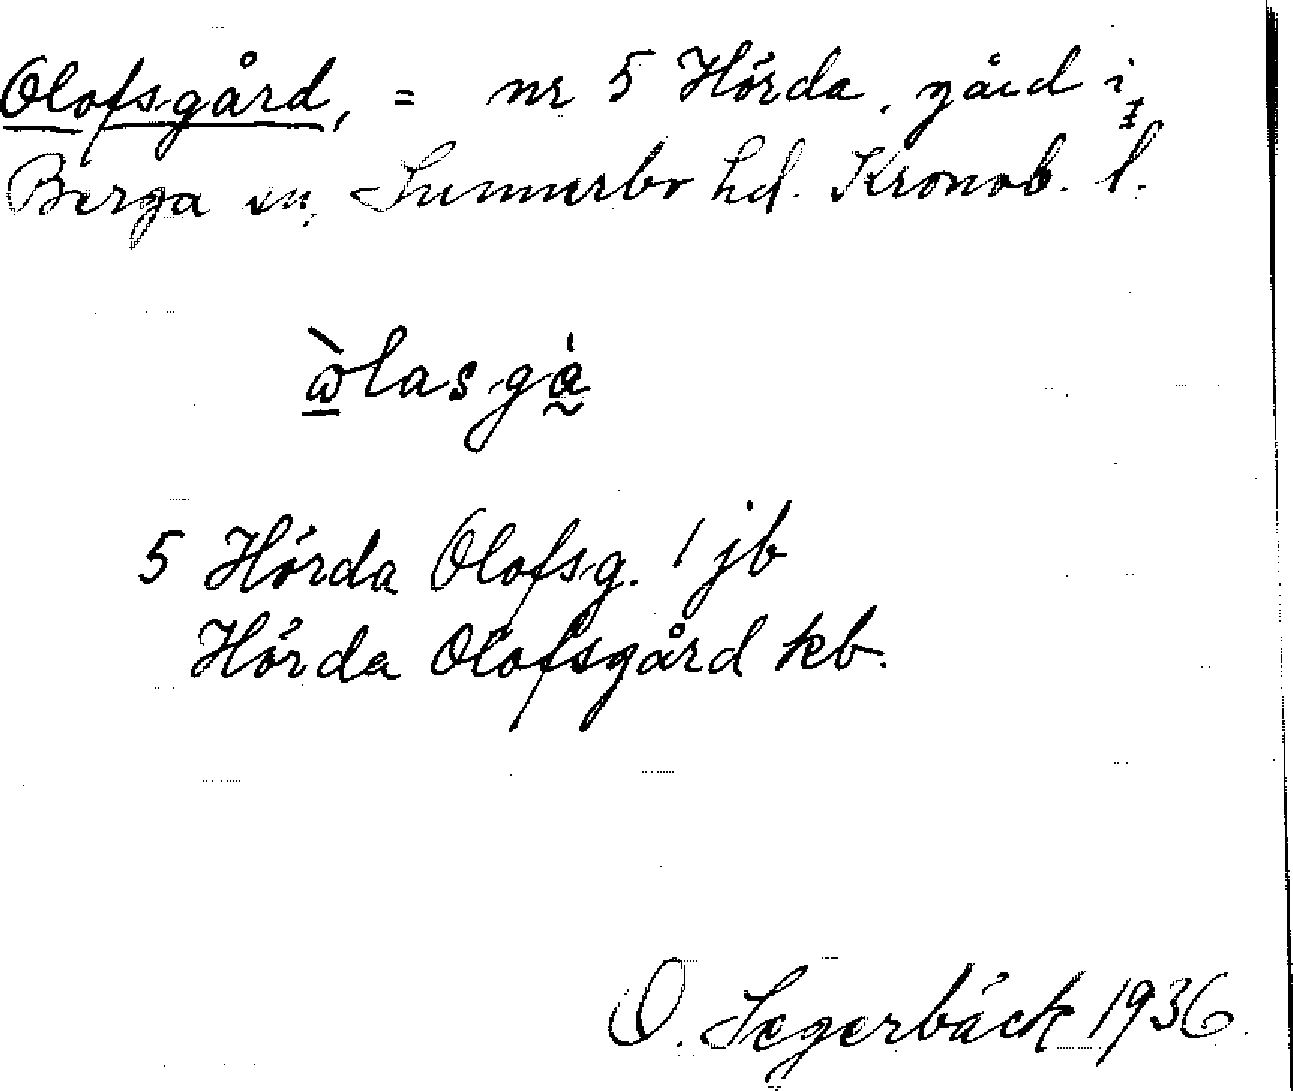 Olofsgård, = nr 5 Hörda, gård i
Berga sn, Sunnerbo hd. Kronob. l.
ὼlasgá̰
5 Hörda Olofsg. 1 jb
Hörda Olofsgård kb.
O. Segerbäck 1936.